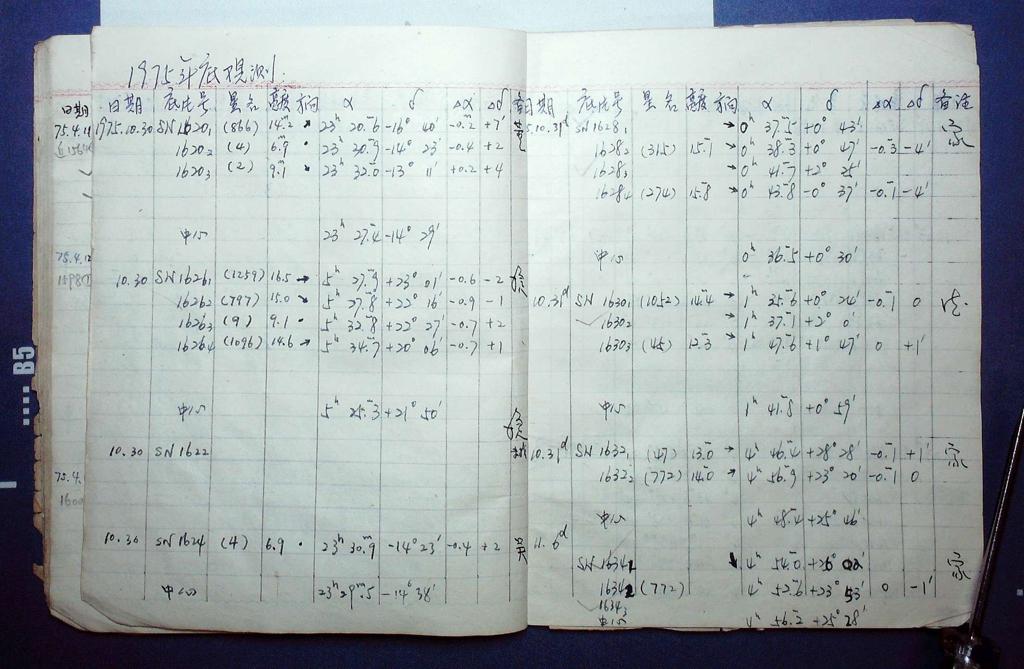 1975年底观测.
日期 日期 底片号 星名 亮度 方向 α δ Δα Δδ
75.4.11 1975.10.30 SN 1620₁ (866) 14.ᵐ2 ↗ 23ʰ 20.ᵐ6 -16° 40′ -0.ᵐ2 +7′
1620₂ (4) 6.ᵐ9 • 23ʰ 30.ᵐ9 -14° 23′ -0.4 +2
1620₃ (2) 9.ᵐ1 • 23ʰ 32.ᵐ0 -13° 11′ +0.2 +4
中心 23ʰ 27.ᵐ4 -14° 29′
75.4.12
10.30 SN 1626₁ (1259) 16.5 → 5ʰ 27.ᵐ9 +23° 01′ -0.6 -2
1626₂ (797) 15.0 → 5ʰ 27.ᵐ8 +22° 16′ -0.9 -1
1626₃ (9) 9.1 • 5ʰ 32.ᵐ8 +22° 27′ -0.7 +2
1626₄ (1096) 14.6 → 5ʰ 34.ᵐ7 +20° 06′ -0.7 +1
中心 5ʰ 25.ᵐ3 +21° 50′
10.30 SN 1622
75.4.
1600
10.30 SN 1624 (4) 6.9 • 23ʰ 30.ᵐ9 -14° 23′ -0.4 +2 吴
中心 23ʰ 29.ᵐ5 -14° 38′
日期 底片号 星名 亮度 方向 α δ Δα Δδ 备注
5.10.31ᵈ SN 1628₁ → 0ʰ 37.ᵐ5 +0° 43′ 家
1628₂ (315) 15.ᵐ1 → 0ʰ 38.ᵐ3 +0° 47′ -0.ᵐ3 -4′
1628₃ → 0ʰ 41.ᵐ7 +2° 25′
1628₄ (274) 15.8 → 0ʰ 43.ᵐ8 -0° 37′ -0.ᵐ1 -4′
中心 0ʰ 36.ᵐ5 +0° 30′
10.31ᵈ SN 1630₁ (1052) 14.ᵐ4 → 1ʰ 35.ᵐ6 +0° 24′ -0.ᵐ1 0
1630₂ 1ʰ 37.ᵐ1 +2° 0′
1630₃ (45) 12.ᵐ3 → 1ʰ 47.ᵐ6 +1° 47′ 0 +1′
中心 1ʰ 41.ᵐ8 +0° 59′
10.31ᵈ SN 1632₁ (47) 13.ᵐ0 → 4ʰ 46.ᵐ4 +28° 28′ -0.ᵐ1 +1′ 家
1632₂ (772) 14.ᵐ0 → 4ʰ 56.ᵐ9 +23° 20′ -0.ᵐ1 0
中心 4ʰ 48.ᵐ4 +25° 46′
11.6ᵈ
SN 1634₁ ↘ 4ʰ 54.ᵐ0 +26° 02′ 家
1634₂ (772) 4ʰ 52.ᵐ6 +23° 53′ 0 -1′
1634₃
中心 4ʰ 56.ᵐ2 +25° 28′
B5